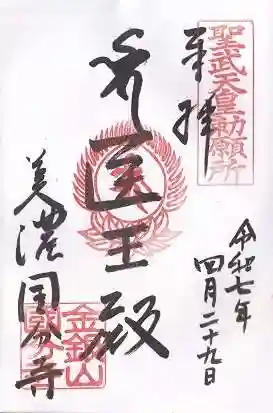 聖武天皇勅願所
奉拝
令和七年
四月二十九日
医王殿
美濃国分寺
金銀山